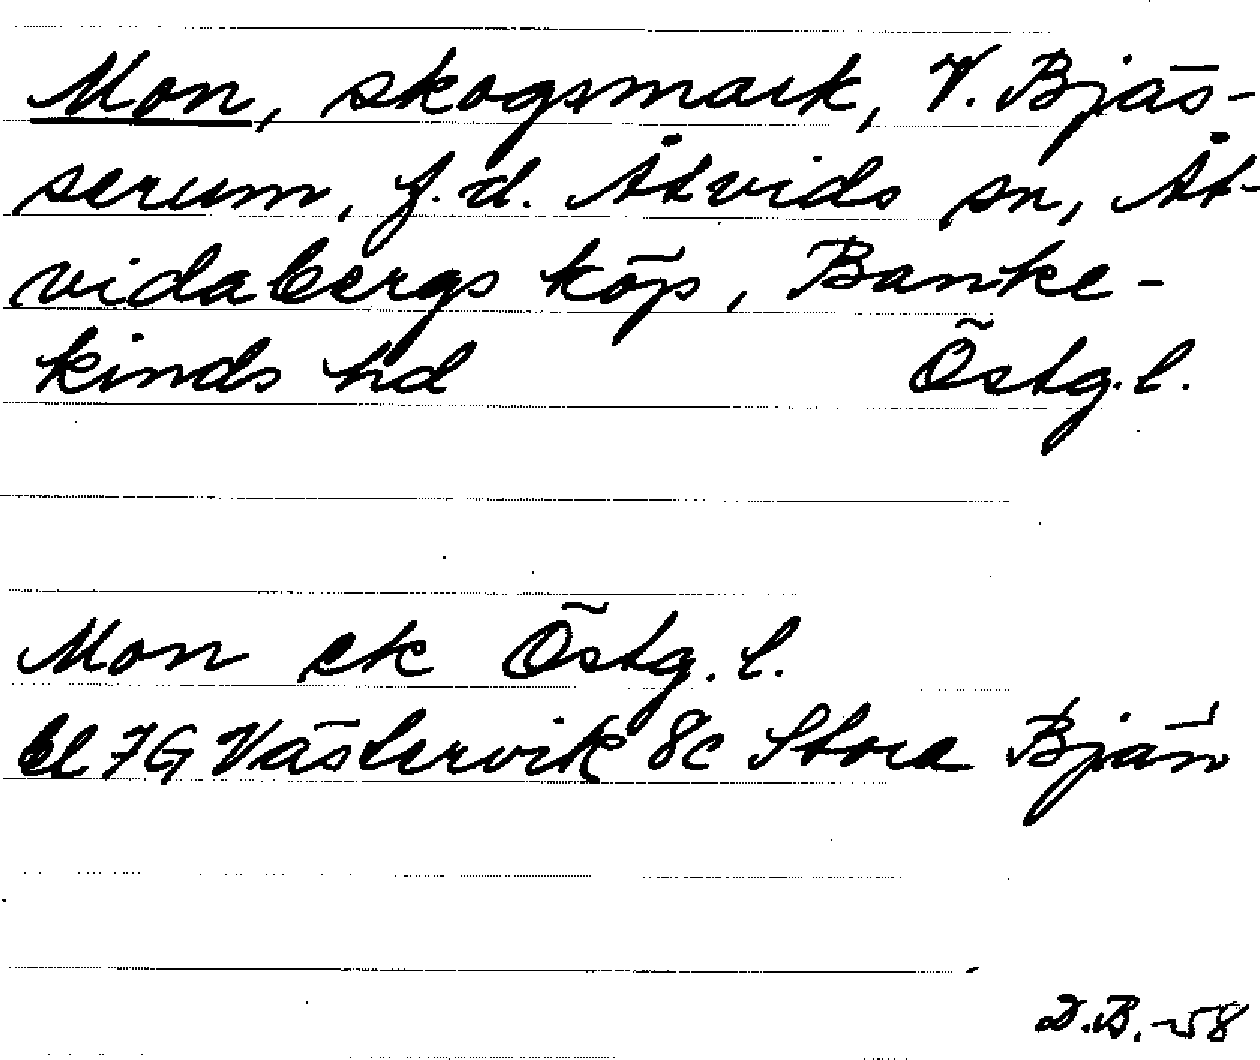 Mon, skogsmark, V. Bjäs-
serum, f.d. Åtvids sn, Åt-
vidabergs köp, Banke-
kinds hd Östg.l.
Mon ek Östg.l.
bl 7G Västervik 8c Stora Bjän
D.B.-58